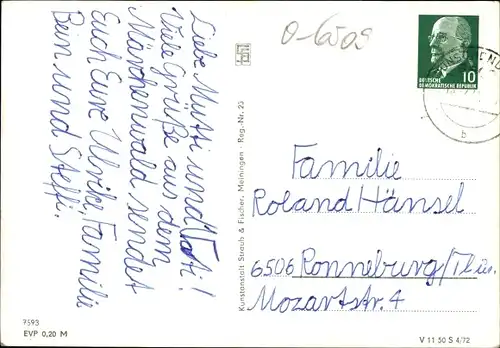 Liebe Mutti und Vati!
Viele Grüße aus dem
Märchenwald sendet
Euch Eure Ulrike, Familie
Bein und Steffi.
7593
EVP 0,20 M
Kunstanstalt Straub & Fischer, Meiningen - Reg.-Nr. 23
0-6509
10
DEUTSCHE
DEMOKRATISCHE REPUBLIK
b
Familie
Roland Hänsel
6506 Ronneburg/Thür.
Mozartstr. 4
V 11 50 S 4/72